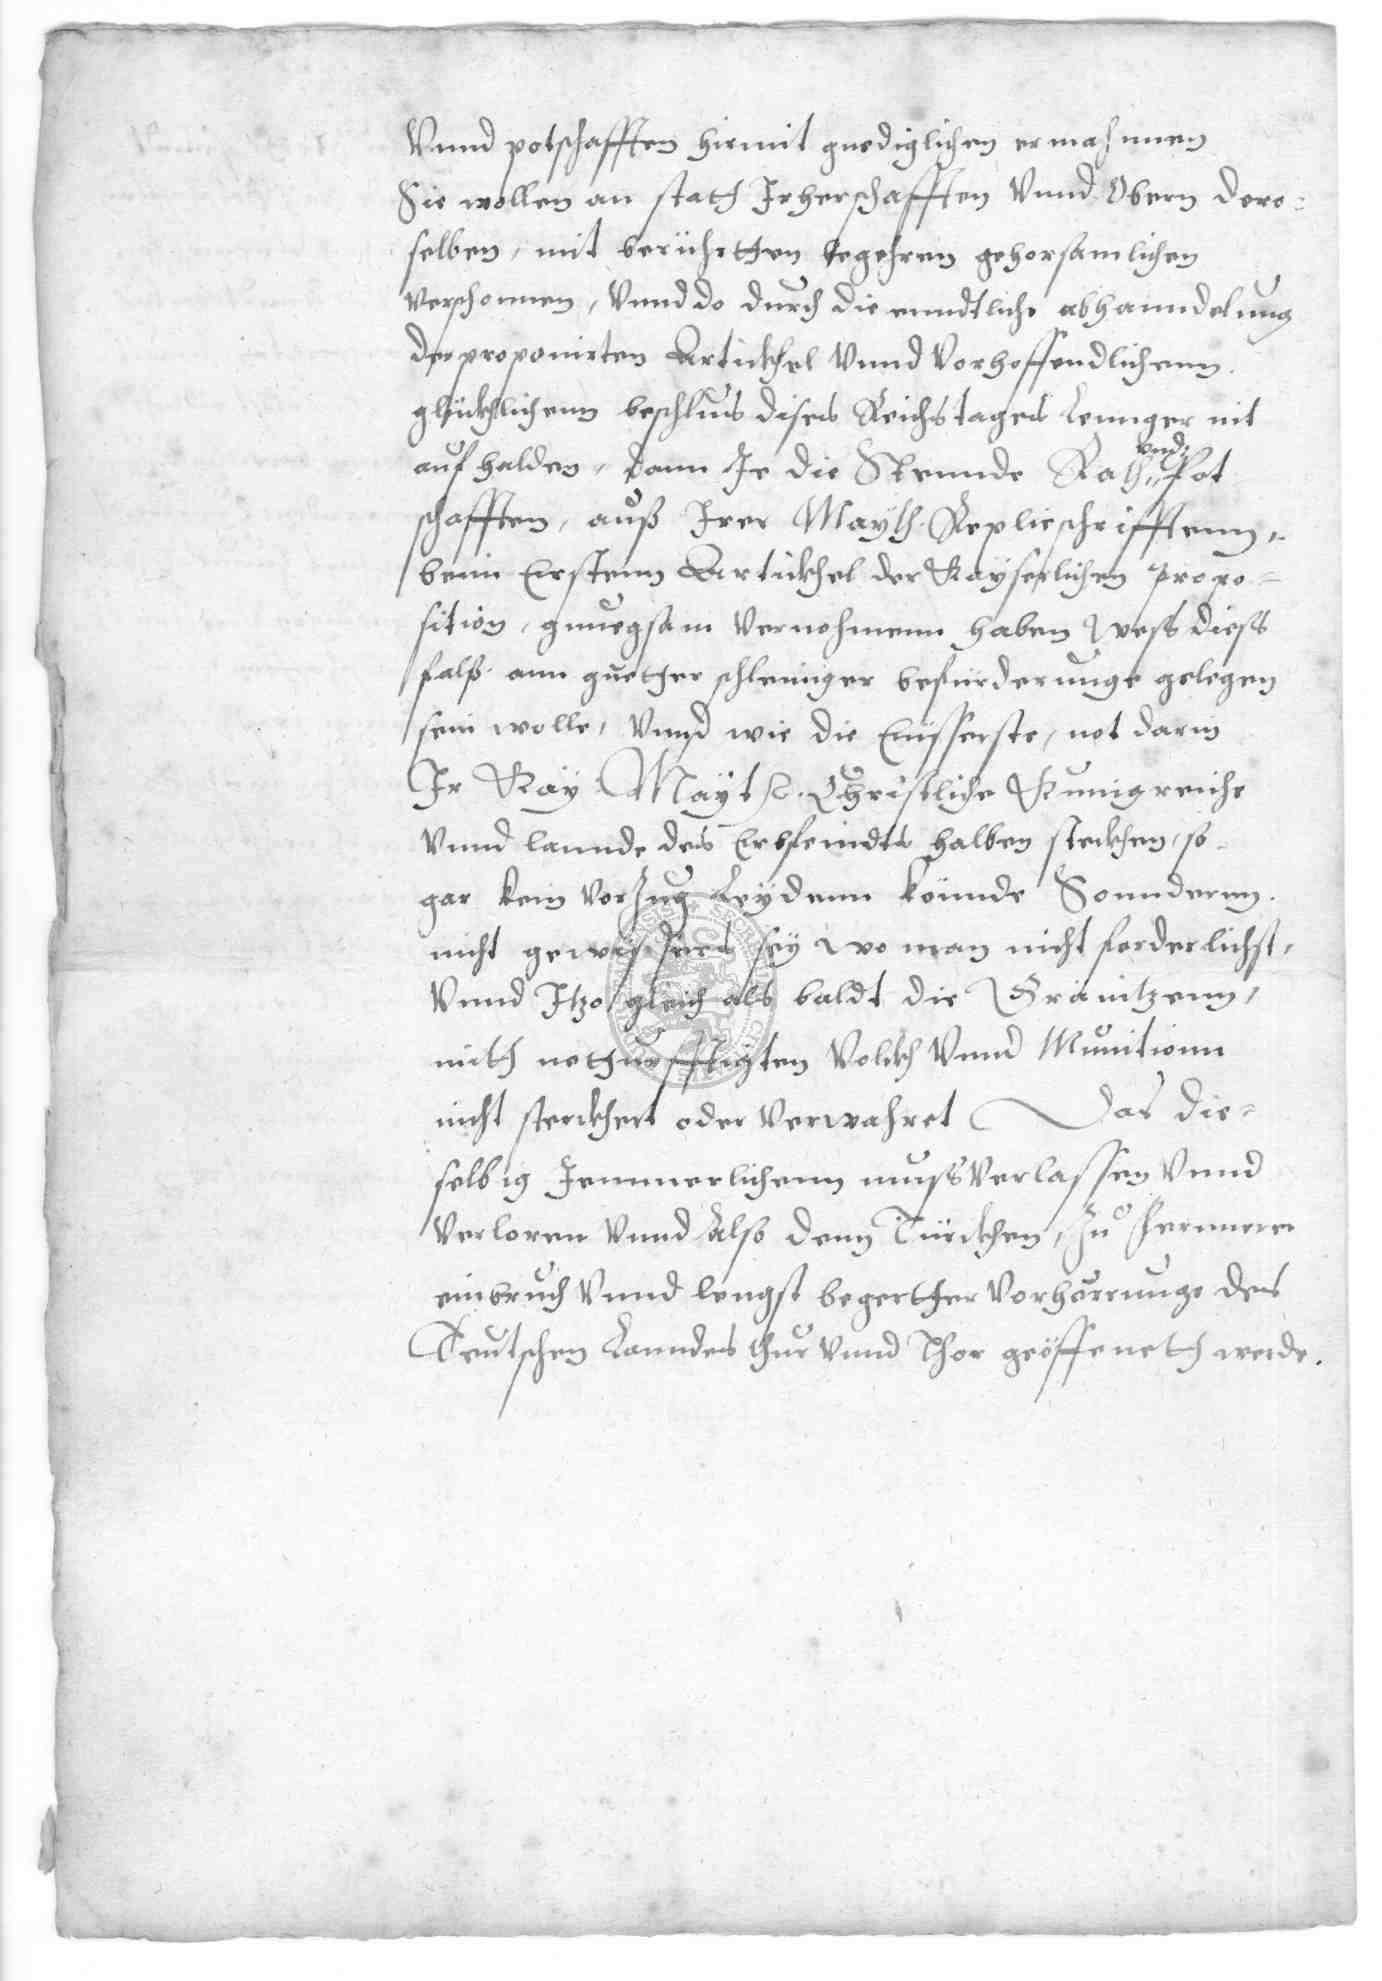 Vnnd potschafften hiemit gnediglichen ermahnnen
Sie wollen an stath Irherschafften Vnnd Obern dero=
selben, mit berührtten begehren gehorsamlichen
Verschonnen, Vnnd do durch die enndtliche abhanndelung
der proponirten Artickhel Vnnd Vorhoffendlichenn
glückhlichenn beschlus dises Reichstages Lennger nit
auf halden, dann Je die Stennde Rath vnd Pot
schafften, auß Irer Mayth. Replicschrifftenn,
beim Erstenn Artickhel der Kayserlichen propo=
sition, gnuegsam Vernohmenn haben Wess diess
falß ann guetter schleuniger befürderunge gelegen
sein wolle, Vnnd wie die Eusserste, not darin
Ir Kay. Mayth. Christliche Kunigreiche
Vnnd lannde des Erbfeindts halben steckhen, so
gar kein Vorzug Leydenn könnde Sonndernn
nicht gewissers sey wo man nicht forderlichst,
Vnnd Itzo gleich als baldt die Gränitzenn,
mith notturfftigten Volckh Vnnd Munitionn
nicht sterckhert oder Verwahret Das die=
selbig Jemmerlichenn muss Verlassen Vnnd
Verloren Vnnd Also denn Türckhen, zu fernnerer
einbruch Vnnd lengst begertter Vorhörrunge des
Teutschen Lanndes thur Vnnd Thor geöffeneth werde.